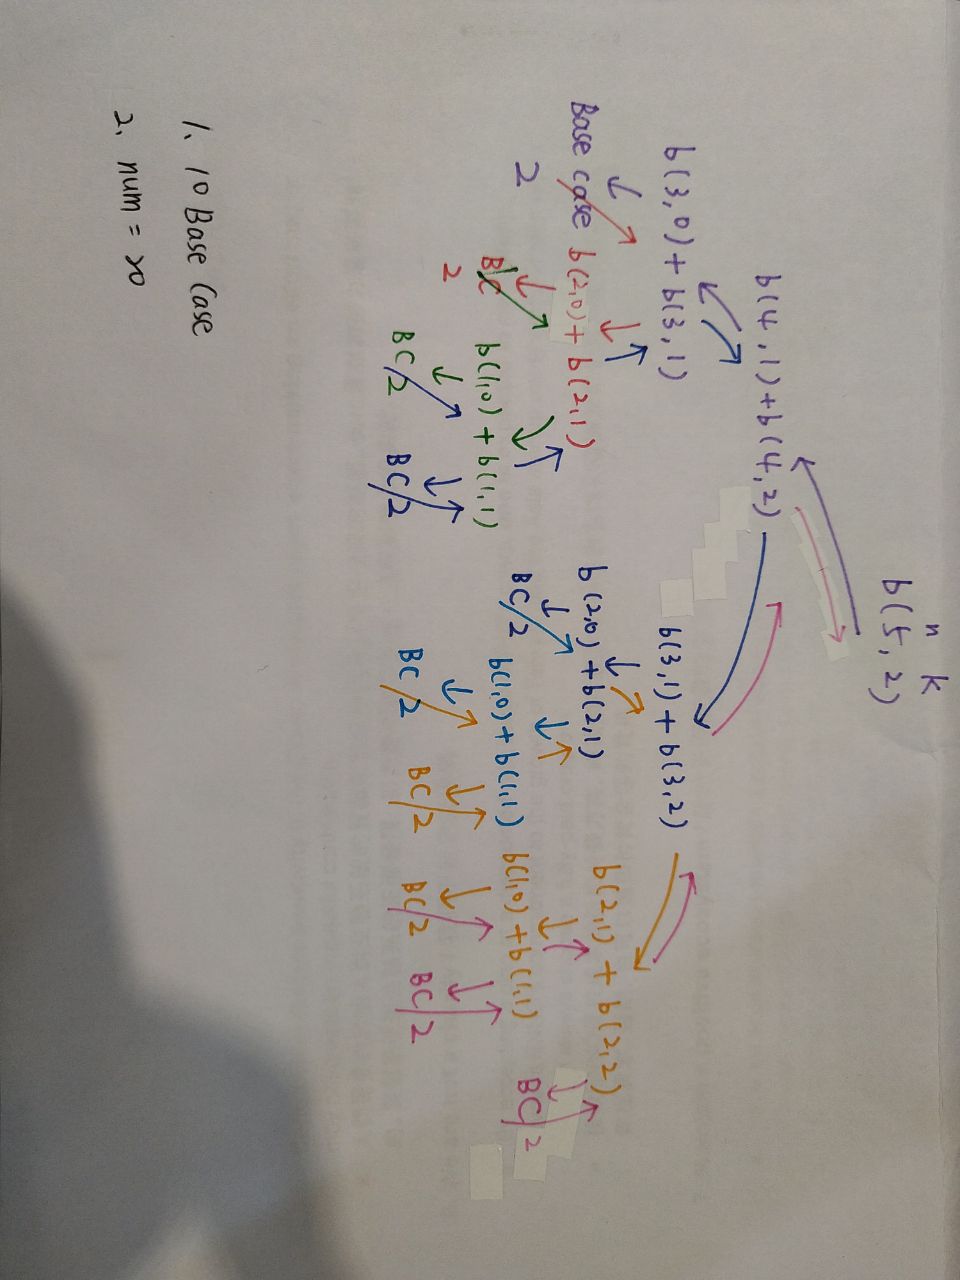 n k
b(5,2)
b(4,1)+b(4,2)
b(3,0)+b(3,1)
b(3,1)+b(3,2)
Base case
2
b(2,0)+b(2,1)
b(2,0)+b(2,1)
b(2,1)+b(2,2)
BC
2
b(1,0)+b(1,1)
BC/2
b(1,0)+b(1,1)
b(1,0)+b(1,1)
BC/2
BC/2
BC/2
BC/2
BC/2
BC/2
BC/2
1. 10 Base Case
2. num = 20